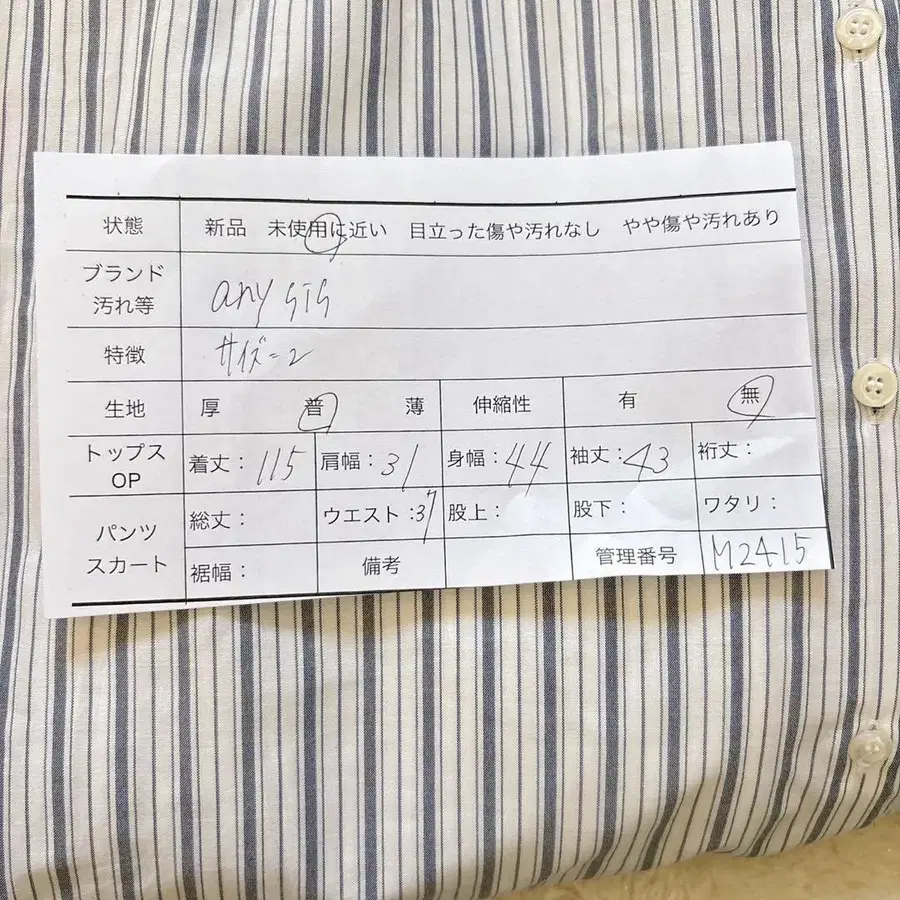 状態 新品 未使用に近い 目立った傷や汚れなし やや傷や汚れあり
ブランド
汚れ等 any SiS
特徴 サイズ=2
生地 厚 普 薄 伸縮性 有 無
トップス
OP 着丈：115 肩幅：31 身幅：44 袖丈：43 裄丈：
パンツ
スカート 総丈： ウエスト：37 股上： 股下： ワタリ：
裾幅： 備考 管理番号 M2415